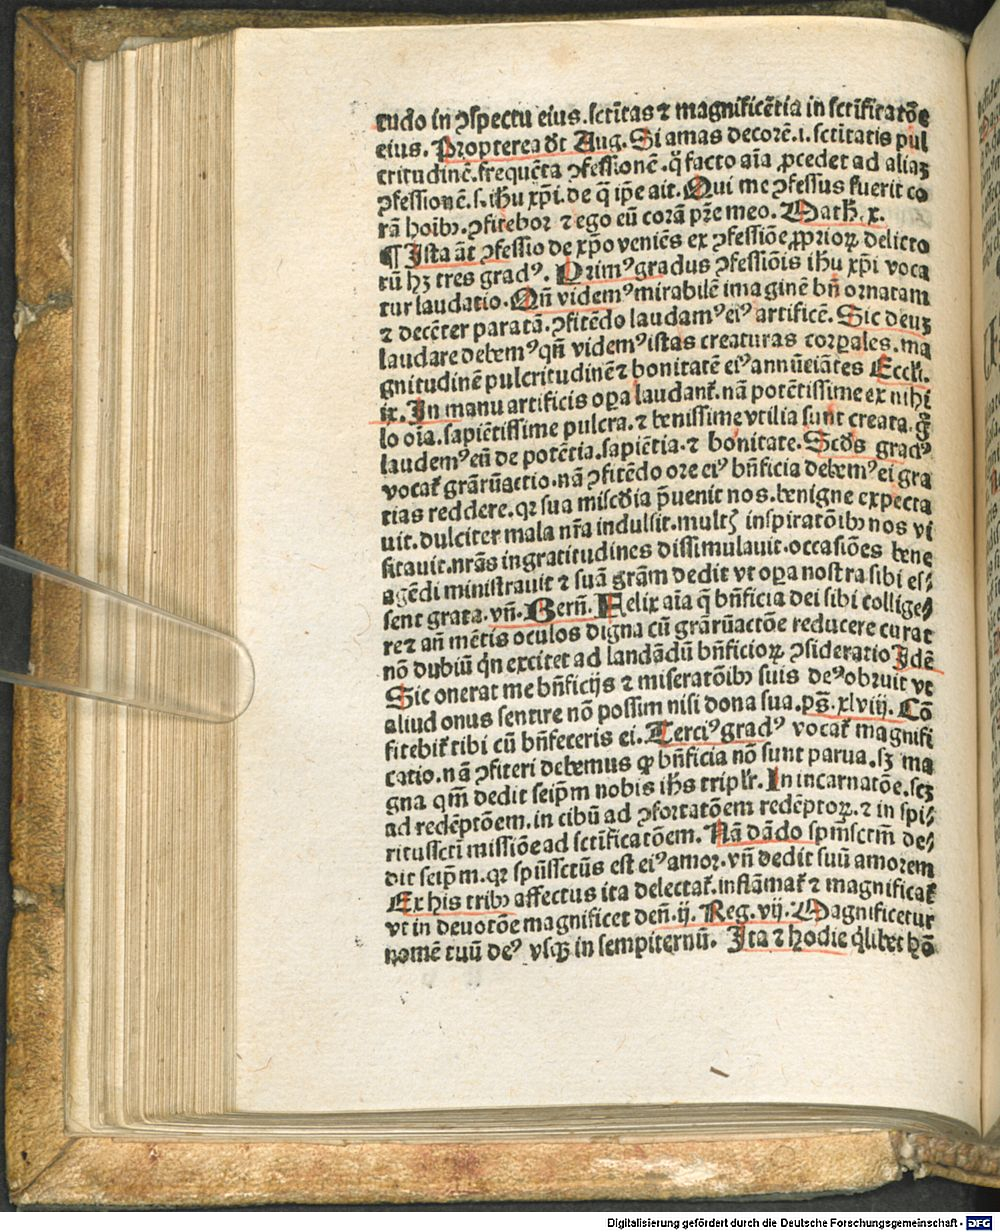 tudo in ꝯspectu eius. sctītas ⁊ magnificētia in sctīficatōe
eius. Propterea dt̄ Aug. Si amas decorē .i. sctītatis pul
critudinē. frequēta ꝯfessionē. q̄ facto aīa ꝓcedet ad aliaꝫ
ꝯfessionē .s. ih̄u xp̄i. de q̄ ip̄e ait. Qui me ꝯfessus fuerit co
rā hoībꝫ. ꝯfitebor ⁊ ego eū corā pr̄e meo. Math. x.
¶ Ista āt ꝯfessio de xp̄o veniēs ex ꝯfessiōe ꝓprioꝝ delicto
rū hꝫ tres gradꝰ. Primꝰ gradus ꝯfessiōis ih̄u xp̄i voca
tur laudatio. Qn̄ videmꝰ mirabilē imaginē bn̄ ornatam
⁊ decēter paratā. ꝯfitēdo laudamꝰ eiꝰ artificē. Sic deuꝫ
laudare debemꝰ qn̄ videmꝰ istas creaturas corꝑales. ma
gnitudinē pulcritudinē ⁊ bonitatē eiꝰ annūciātes Eccłi.
ix. In manu artificis oꝑa laudant̄. nā potētissime ex nihi
lo oīa. sapiētissime pulcra. ⁊ benissime vtilia sunt creata. g̊
laudemꝰ eū de potētia. sapiētia. ⁊ bonitate. Scd̄s gradꝰ
vocat̄ grāꝝactio. nā ꝯfitēdo ore eiꝰ bn̄ficia debemꝰ ei gra
tias reddere. qꝛ sua miscd̄ia p̄uenit nos. benigne expecta
uit. dulciter mala nr̄a indulsit. multꝭ inspiratōibꝫ nos vi
sitauit. nr̄as ingratitudines dissimulauit. occasiōes bene
agēdi ministrauit ⁊ suā grām dedit vt oꝑa nostra sibi es⸗
sent grata. vn̄. Bern̄. Felix aīa q̄ bn̄ficia dei sibi collige⸗
re ⁊ an̄ mētis oculos digna cū grāꝝactōe reducere curat
nō dubiū qn̄ excitet ad landādū bn̄ficioꝝ ꝯsideratio Idē
Sic onerat me bn̄ficijs ⁊ miseratōibꝫ suis deꝰ obruit vt
aliud onus sentire nō possim nisi dona sua. ps̄. xlviij. Cō
fitebit̄ tibi cū bn̄feceris ei. Terciꝰ gradꝰ vocat̄ magnifi
catio. nā ꝯfiteri debemus ꝙ bn̄ficia nō sunt parua. sꝫ ma
gna qm̄ dedit seip̄m nobis ih̄s triplr̄. In incarnatōe. scꝫ
ad redēptōem. in cibū ad ꝯfortatōem redēptoꝝ. ⁊ in spi⸗
ritussctī missiōe ad sctīficatōem. Nā dādo spm̄sctm̄ de⸗
dit seip̄m. qꝛ spūssctūs est eiꝰ amor. vn̄ dedit suū amorem
Ex his tribꝫ affectus ita delectat̄. inflāmat̄ ⁊ magnificat̄
vt in deuotōe magnificet deū. ij. Reg. vij. Magnificetur
nomē tuū deꝰ vsqꝫ in sempiternū. Ita ⁊ hodie qͥlibet hō
Digitalisierung gefördert durch die Deutsche Forschungsgemeinschaft - DFG